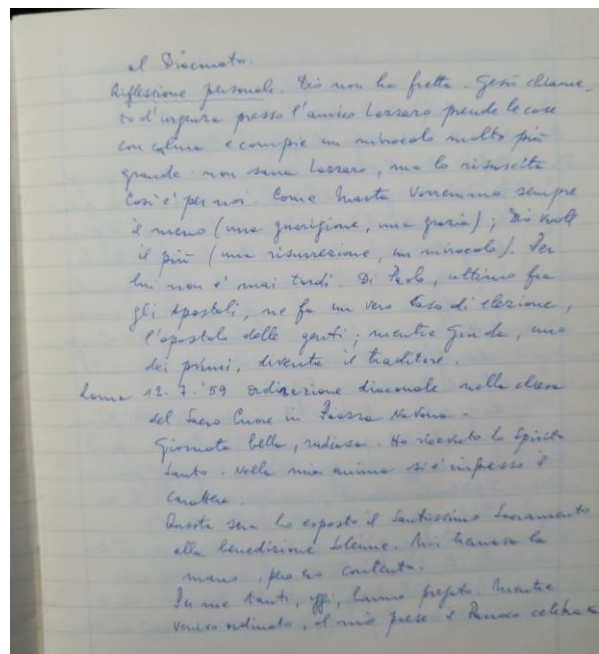 al Diaconato.
Riflessione personale. Dio non ha fretta. Gesù chiama-
to d'urgenza presso l'amico Lazzaro prende le cose
con calma e compie un miracolo molto più
grande: non sana Lazzaro, ma lo risuscita.
Così è per noi. Come Marta vorremmo sempre
il meno (una guarigione, una grazia); Dio vuole
il più (una risurrezione, un miracolo). Per
lui non è mai tardi. Di Paolo, ultimo fra
gli Apostoli, ne fa un vero Vaso di elezione,
l'apostolo delle genti; mentre Giuda, uno
dei primi, diventa il traditore.
Roma 12.7.'59 Ordinazione diaconale nella chiesa
del Sacro Cuore in Piazza Navona.
Giornata bella, radiosa. Ho ricevuto lo Spirito
Santo. Nella mia anima si è impresso il
Carattere.
Questa sera ho esposto il Santissimo Sacramento
alla benedizione Solenne. Mi tremava la
mano, però ero contento.
Per me tanti, oggi, hanno pregato. Mentre
venivo ordinato, al mio paese il Parroco celebrava